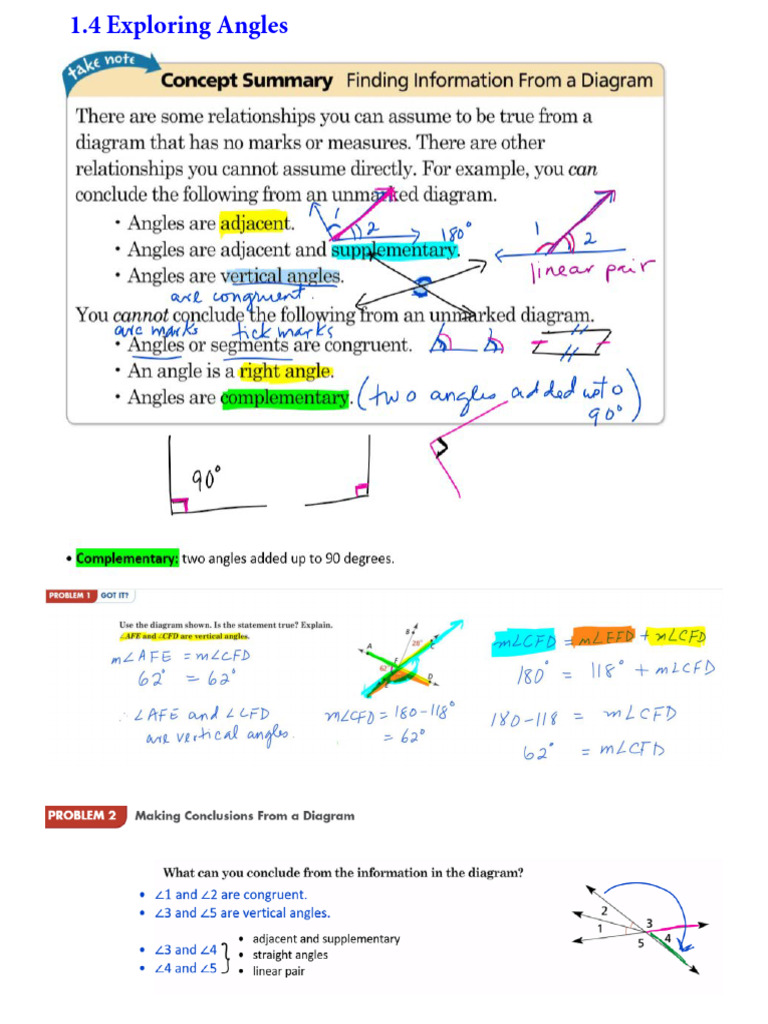 1.4 Exploring Angles
take note
Concept Summary Finding Information From a Diagram
There are some relationships you can assume to be true from a
diagram that has no marks or measures. There are other
relationships you cannot assume directly. For example, you can
conclude the following from an unmarked diagram.
• Angles are adjacent.
1 2 180°
1 2
• Angles are adjacent and supplementary.
linear pair
• Angles are vertical angles.
are congruent.
You cannot conclude the following from an unmarked diagram.
arc marks tick marks
• Angles or segments are congruent.
• An angle is a right angle.
• Angles are complementary. (two angles added upto
90°)
90°
• Complementary: two angles added up to 90 degrees.
PROBLEM 1 GOT IT?
Use the diagram shown. Is the statement true? Explain.
∠AFE and ∠CFD are vertical angles.
B 28° A 62° D
m∠CFD = m∠EFD + m∠CFD
m∠AFE = m∠CFD
180° = 118° + m∠CFD
62° = 62°
∴ ∠AFE and ∠CFD
are vertical angles.
m∠CFD = 180 - 118°
= 62°
180 - 118 = m∠CFD
62° = m∠CFD
PROBLEM 2 Making Conclusions From a Diagram
What can you conclude from the information in the diagram?
• ∠1 and ∠2 are congruent.
• ∠3 and ∠5 are vertical angles.
• ∠3 and ∠4
• ∠4 and ∠5
• adjacent and supplementary
• straight angles
• linear pair
2 1 3 4 5